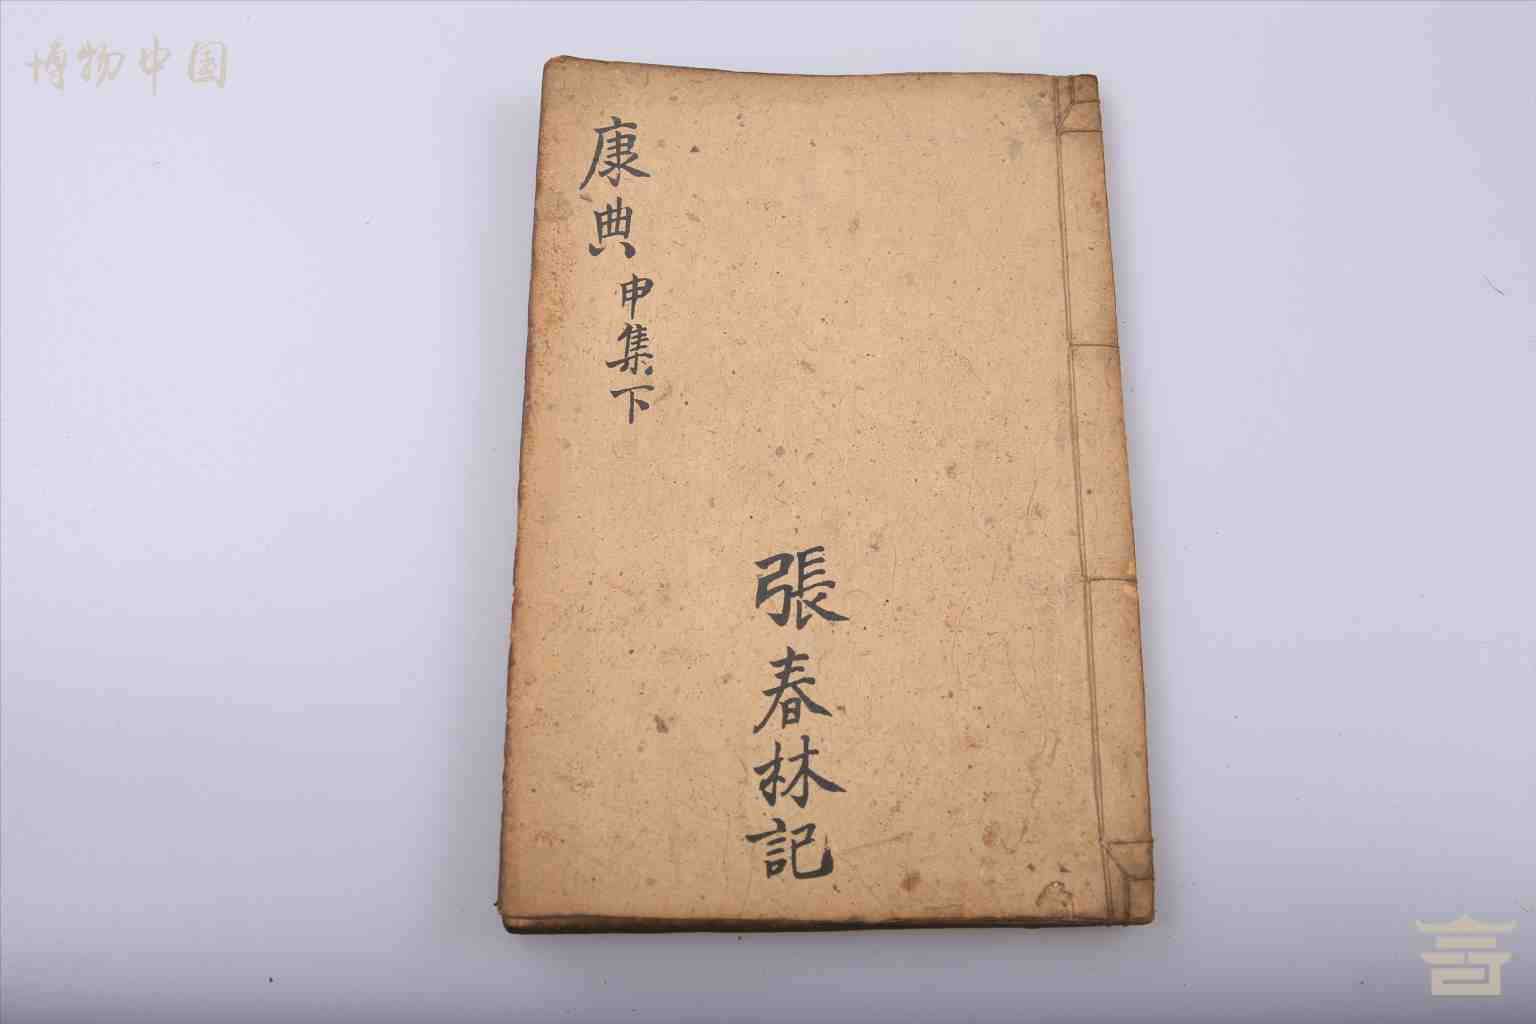 博物中国
康典
申集下
張春林記